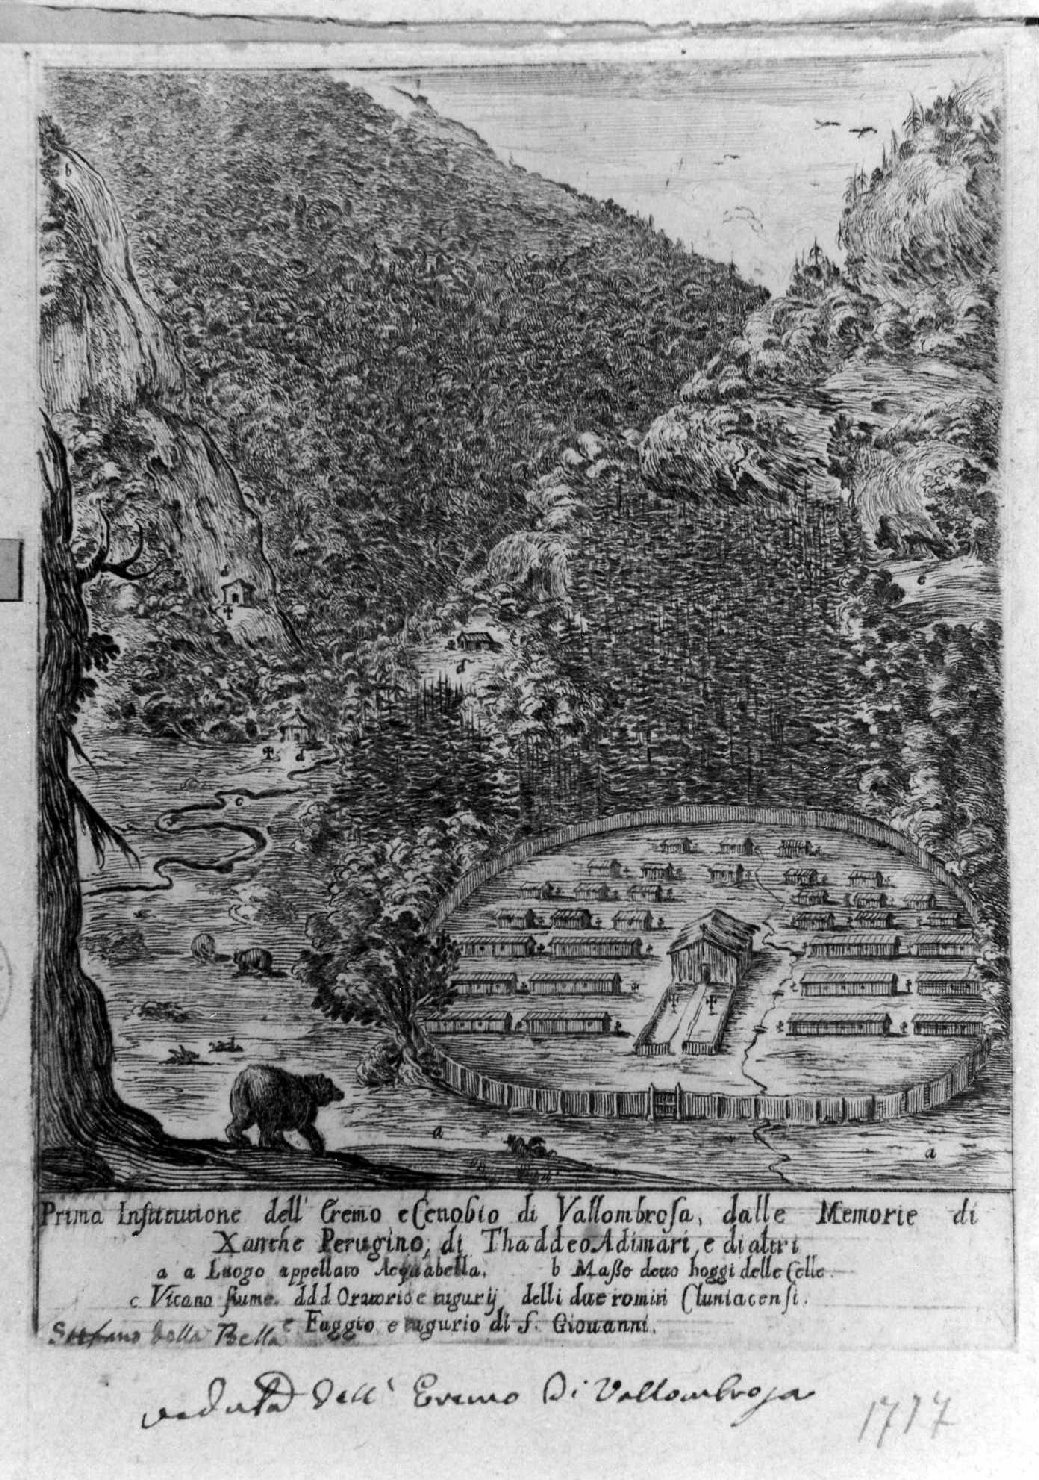 b
d
d
d
c
e
a
a
Prima Institutione dell' Eremo e Cenobio di Vallombrosa, dalle Memorie di
Xanthe Perugino, di Thaddeo Adimari, e di altri
a a Luogo appellato Acquabella. b Masso detto hoggi delle Celle.
c Vicano fiume. d d d Oratorio e tugurij delli due romiti Cluniacensi.
e Faggio e tugurio di S. Giouanni.
Stefano della Bella
veduta dell' Eremo Di Vallombrosa
1777